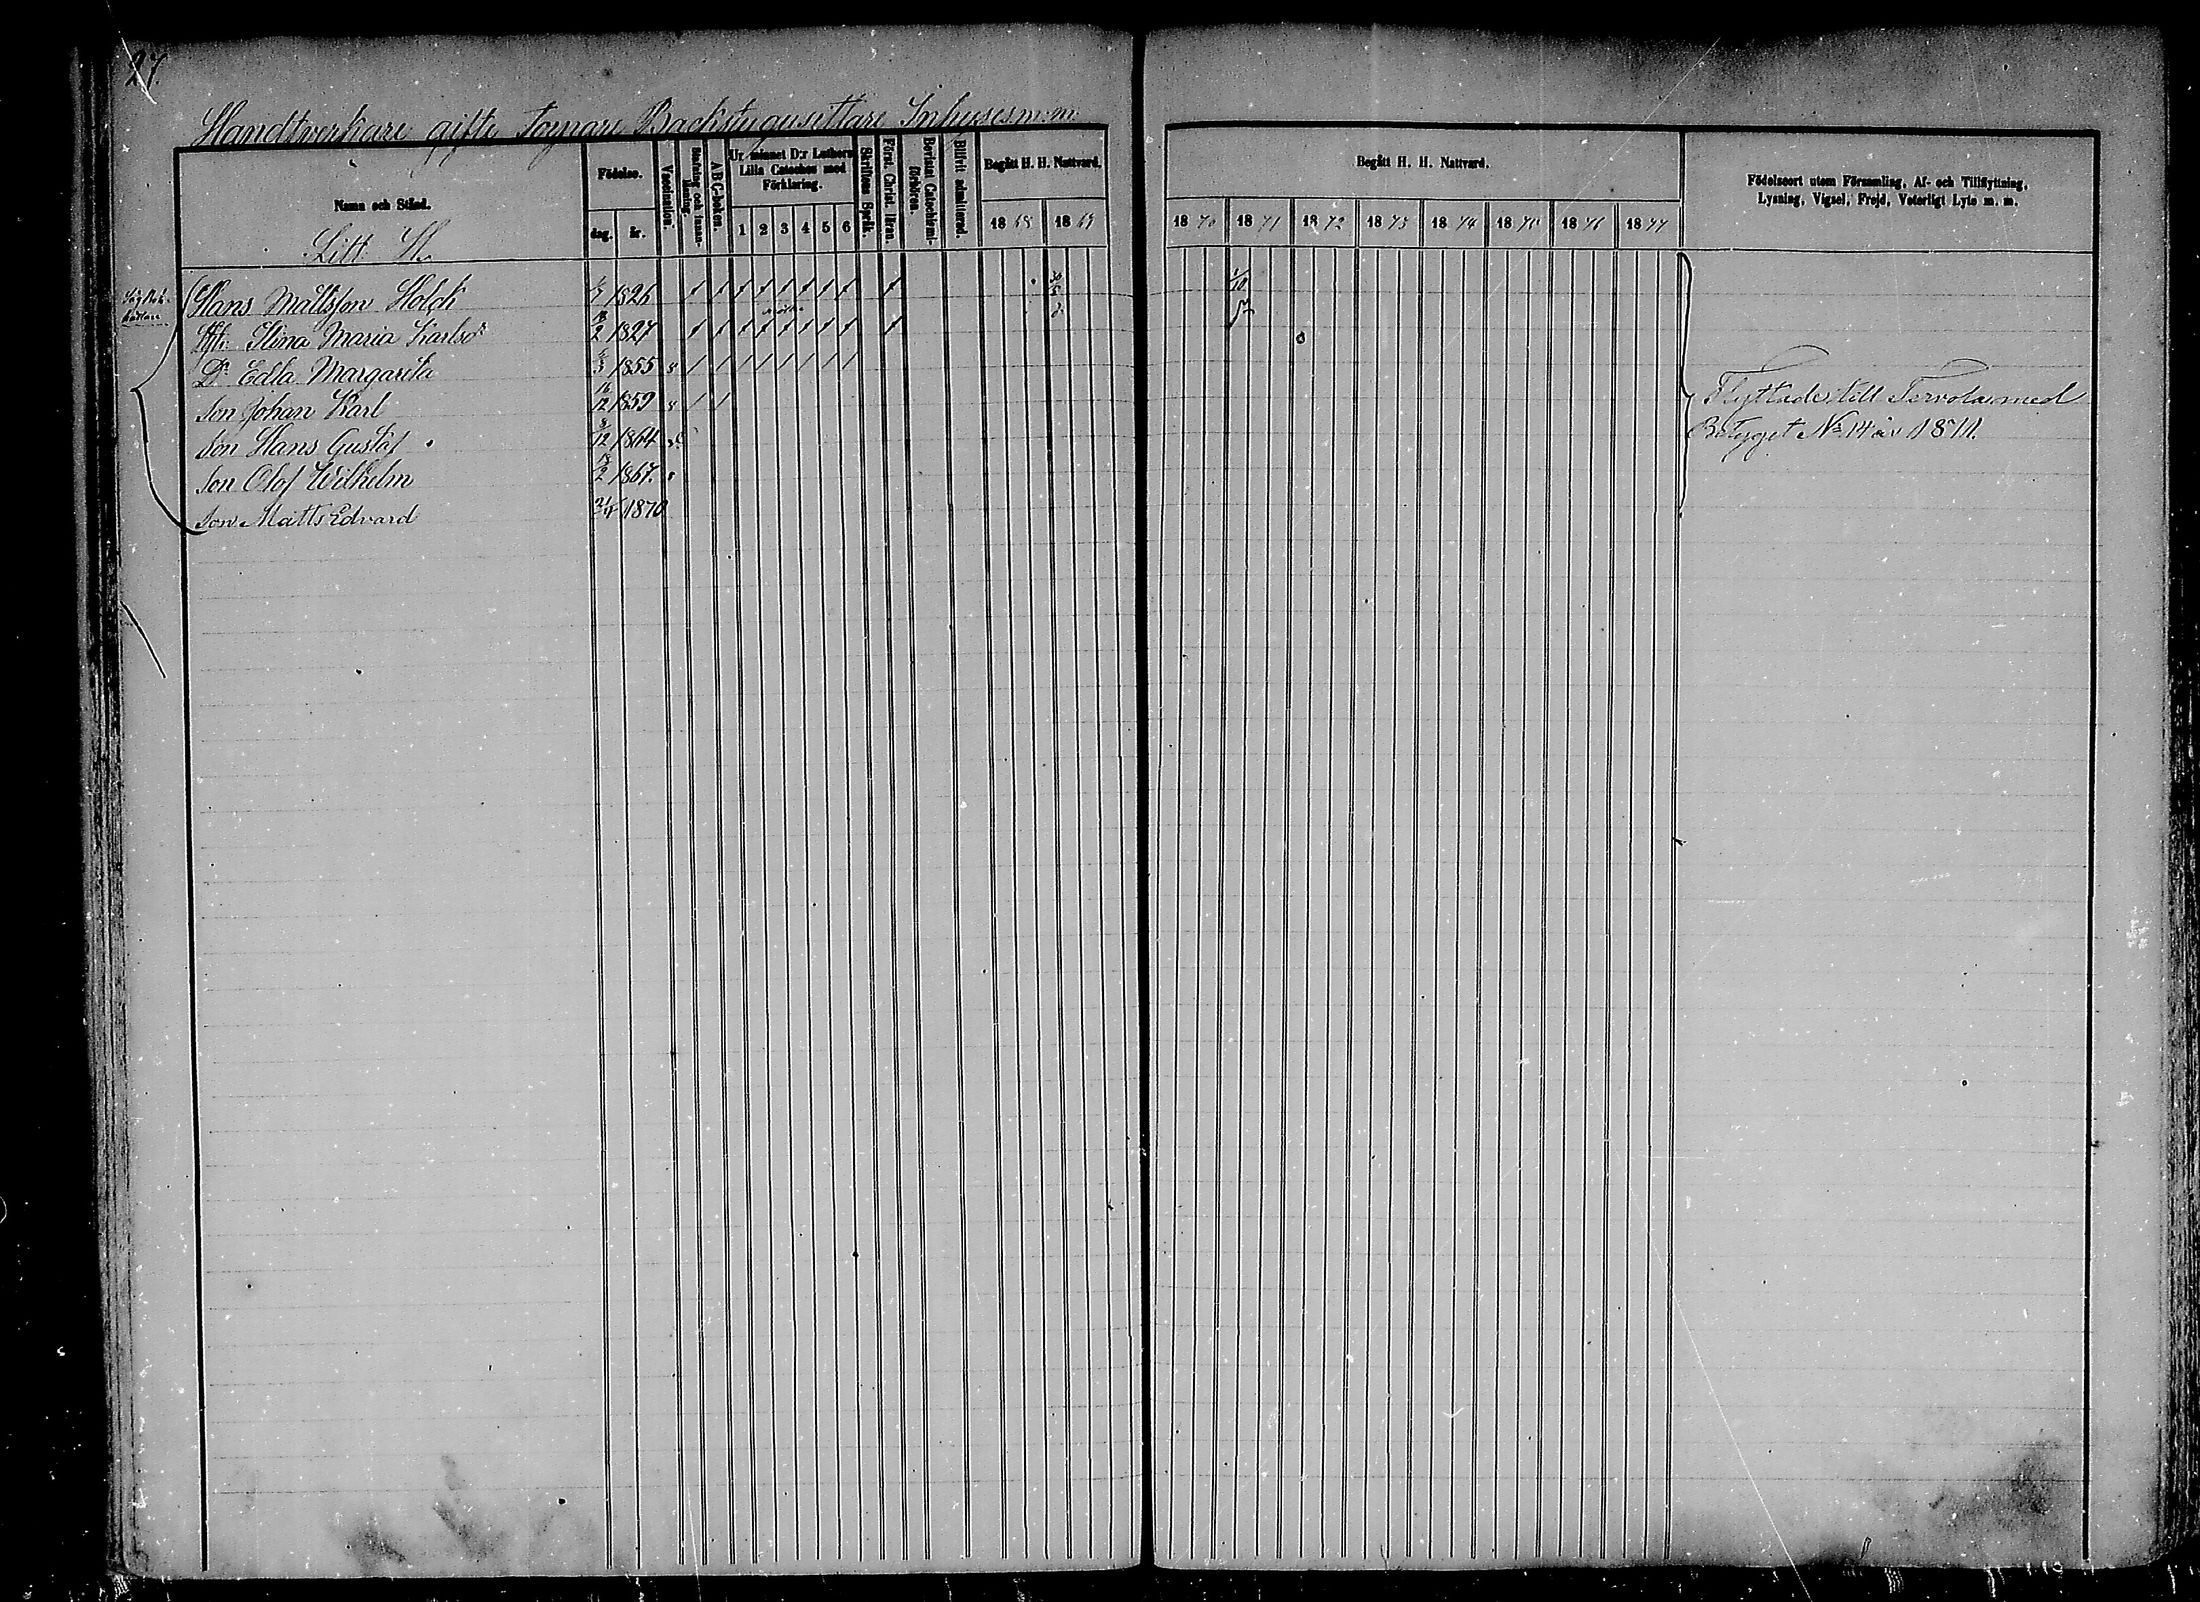 27.
Handtverkare gifte Torpare Backstugusittare Inhyses m.m.
Namn och Stånd.
Födelse.
dag. år.
Vaccination.
ABC-boken.
Ur minnet D:r Luthers
Lilla Cateches med
Förklaring.
1 2 3 4 5 6
Skriftens Språk.
Först. Christ. läran.
Bevistat Catechismi-
förhören.
Begått H. H. Nattvard.
18 68 18 69
Begått H. H. Nattvard.
18 70 18 71 18 72 18 73 18 74 18 75 18 76 18 77
Födelseort utom Församling, Af- och Tillflyttning,
Lysning, Vigsel, Frejd, Veterligt Lyte m. m.
Litt. H.
Hans Mattsson 1826
Hst: Maria Karlsdr 1827
Dr Edla Margareta 1855
Son Johan Karl 16/12 1859
Son Hans Gustaf 1864
Son Olof Wilhelm 1867.
Son Matts Edvard 1870
Flyttade till Tervola med
Betyget No 14 år 1871.